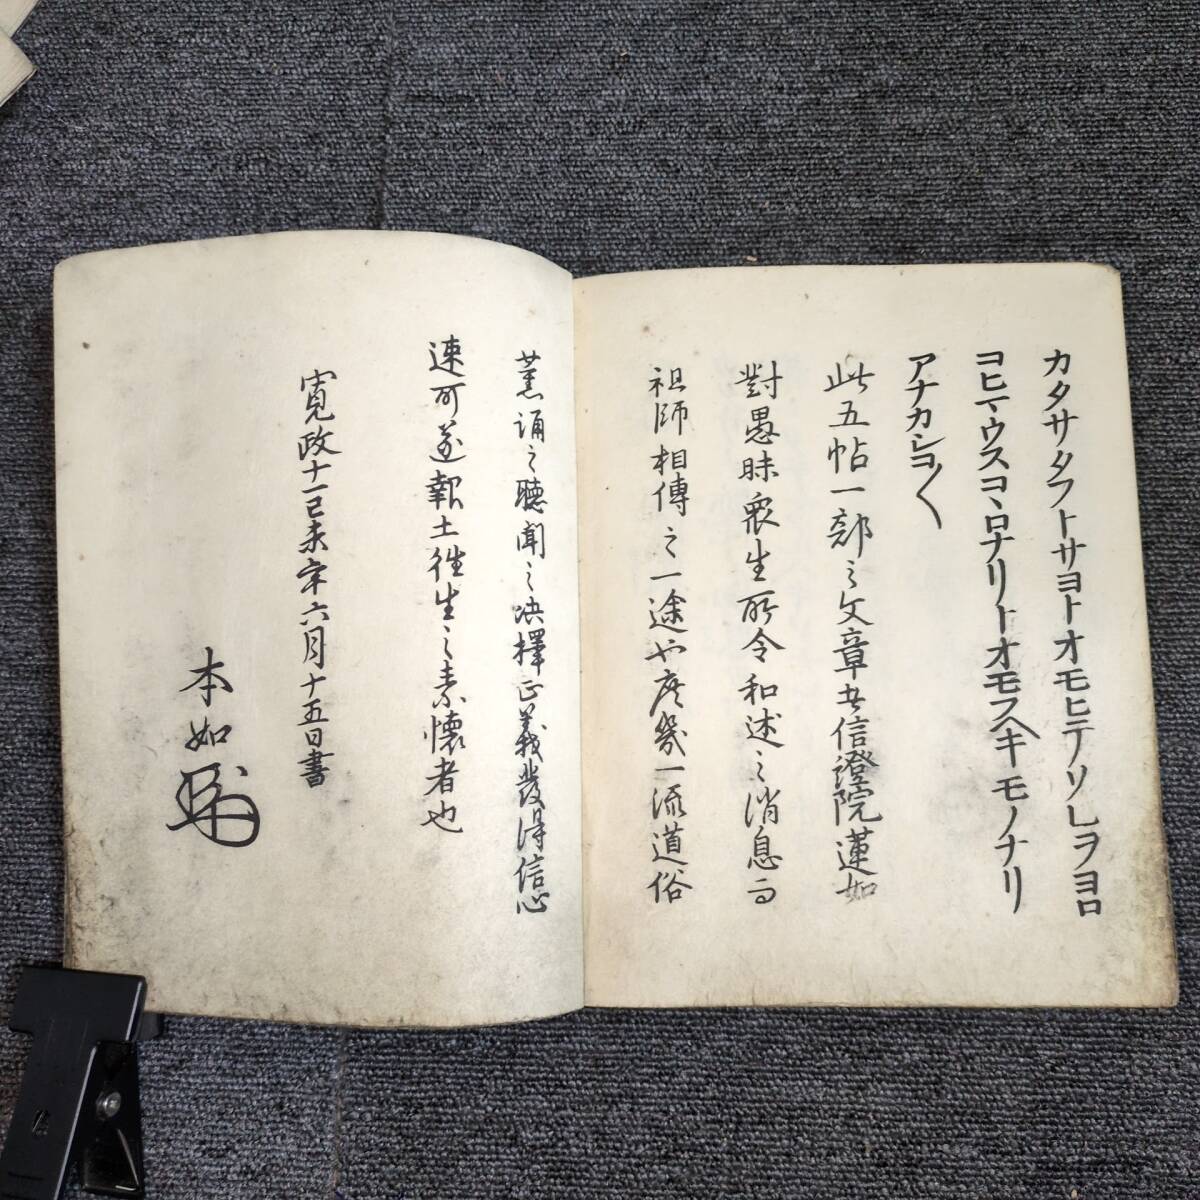 カタサタフトサヨトオモヒテソレヲヨロ
コヒマウスコヽロナリトオモフヘキモノナリ
アナカシコ〱
此五帖一部之文章者信證院蓮如
對愚昧衆生所令和述之消息而
祖師相傳之一途也庶幾一流道俗
薫誦之聴聞之決擇正義發得信心
速可遂報土往生之素懐者也
寛政十一己未 六月十五日書
本如